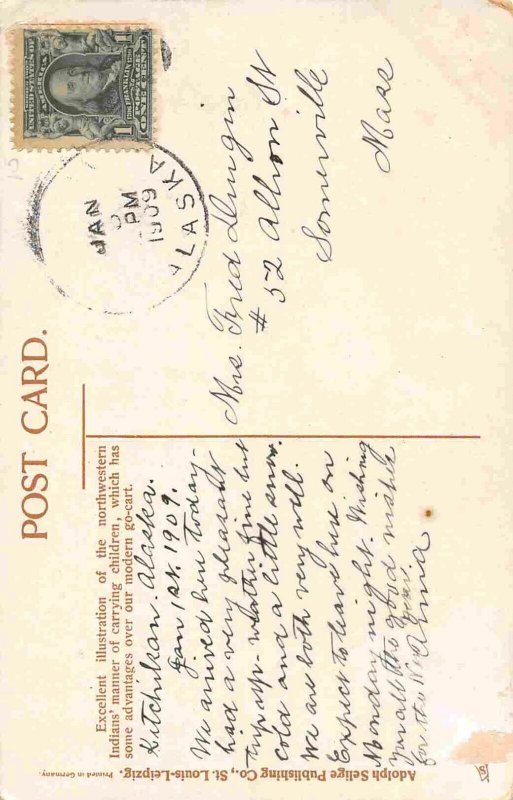 UNITED STATES OF AMERICA
FRANKLIN
POSTAGE
ONE CENT
1
1
JAN
PM
1909
ALASKA
POST CARD.
Excellent illustration of the northwestern
Indians' manner of carrying children, which has
some advantages over our modern go-cart.
Ketchikan. Alaska.
Jan 1st. 1909.
We arrived here today-
had a very pleasant
trip up- weather fine but
cold and a little snow.
We are both very well.
Expect to leave here on
Monday night. Wishing
you all the good
for the N. Year
Mrs. Fred
# 52 Albion St
Somerville
Mass
Adolph Selige Publishing Co., St. Louis-Leipzig. Printed in Germany.